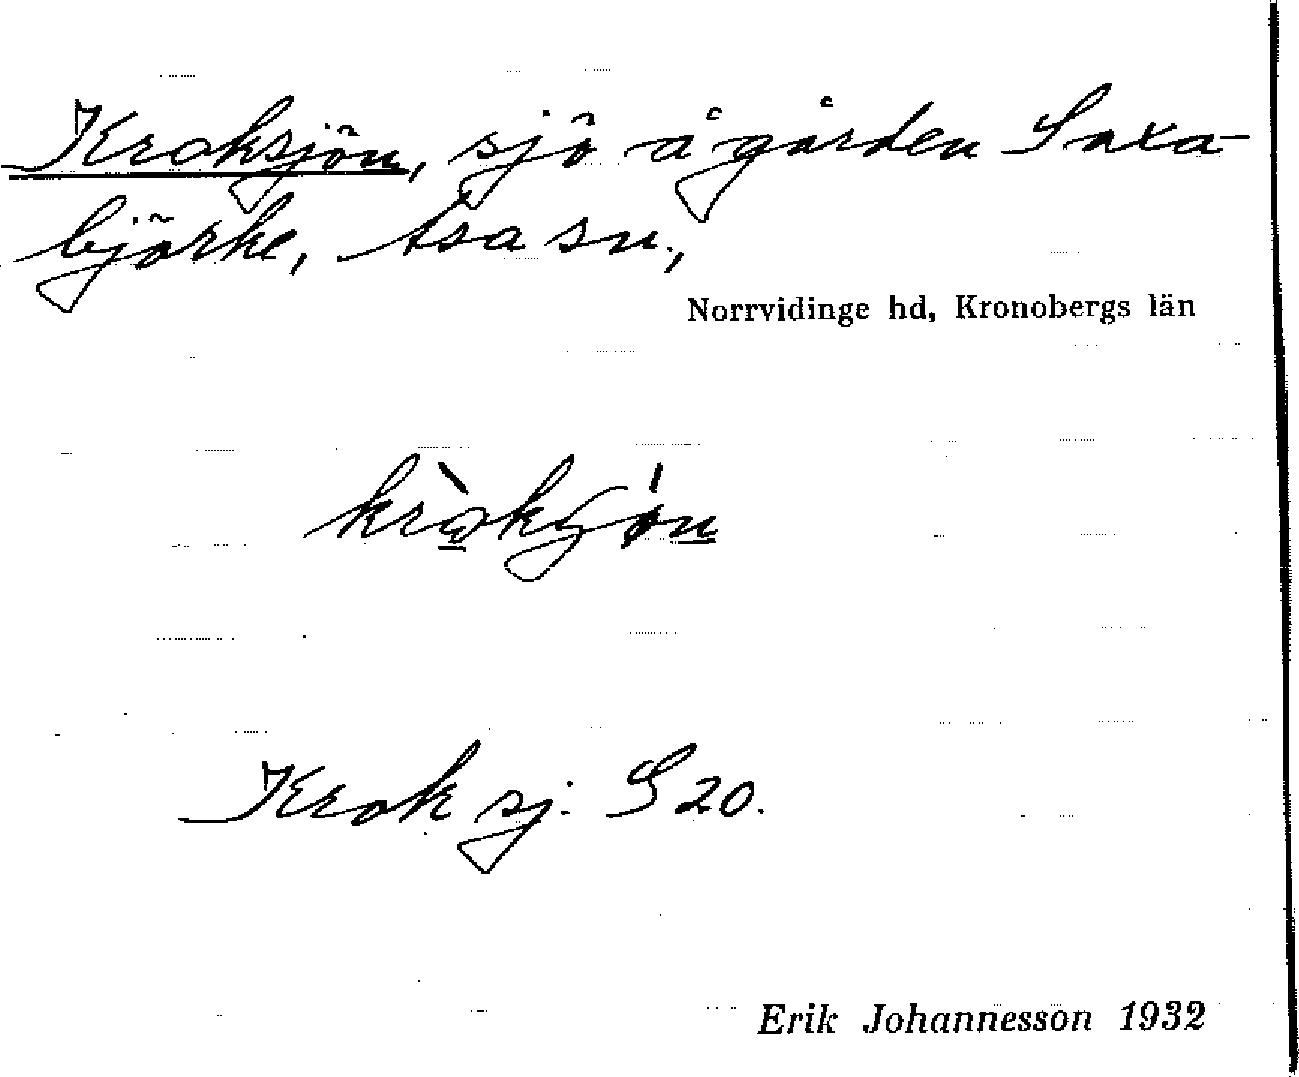 Kroksjön, sjö å gården Saxa-
björke, Asa sn.,
Norrvidinge hd, Kronobergs län
Kroksj. S 20.
Erik Johannesson 1932